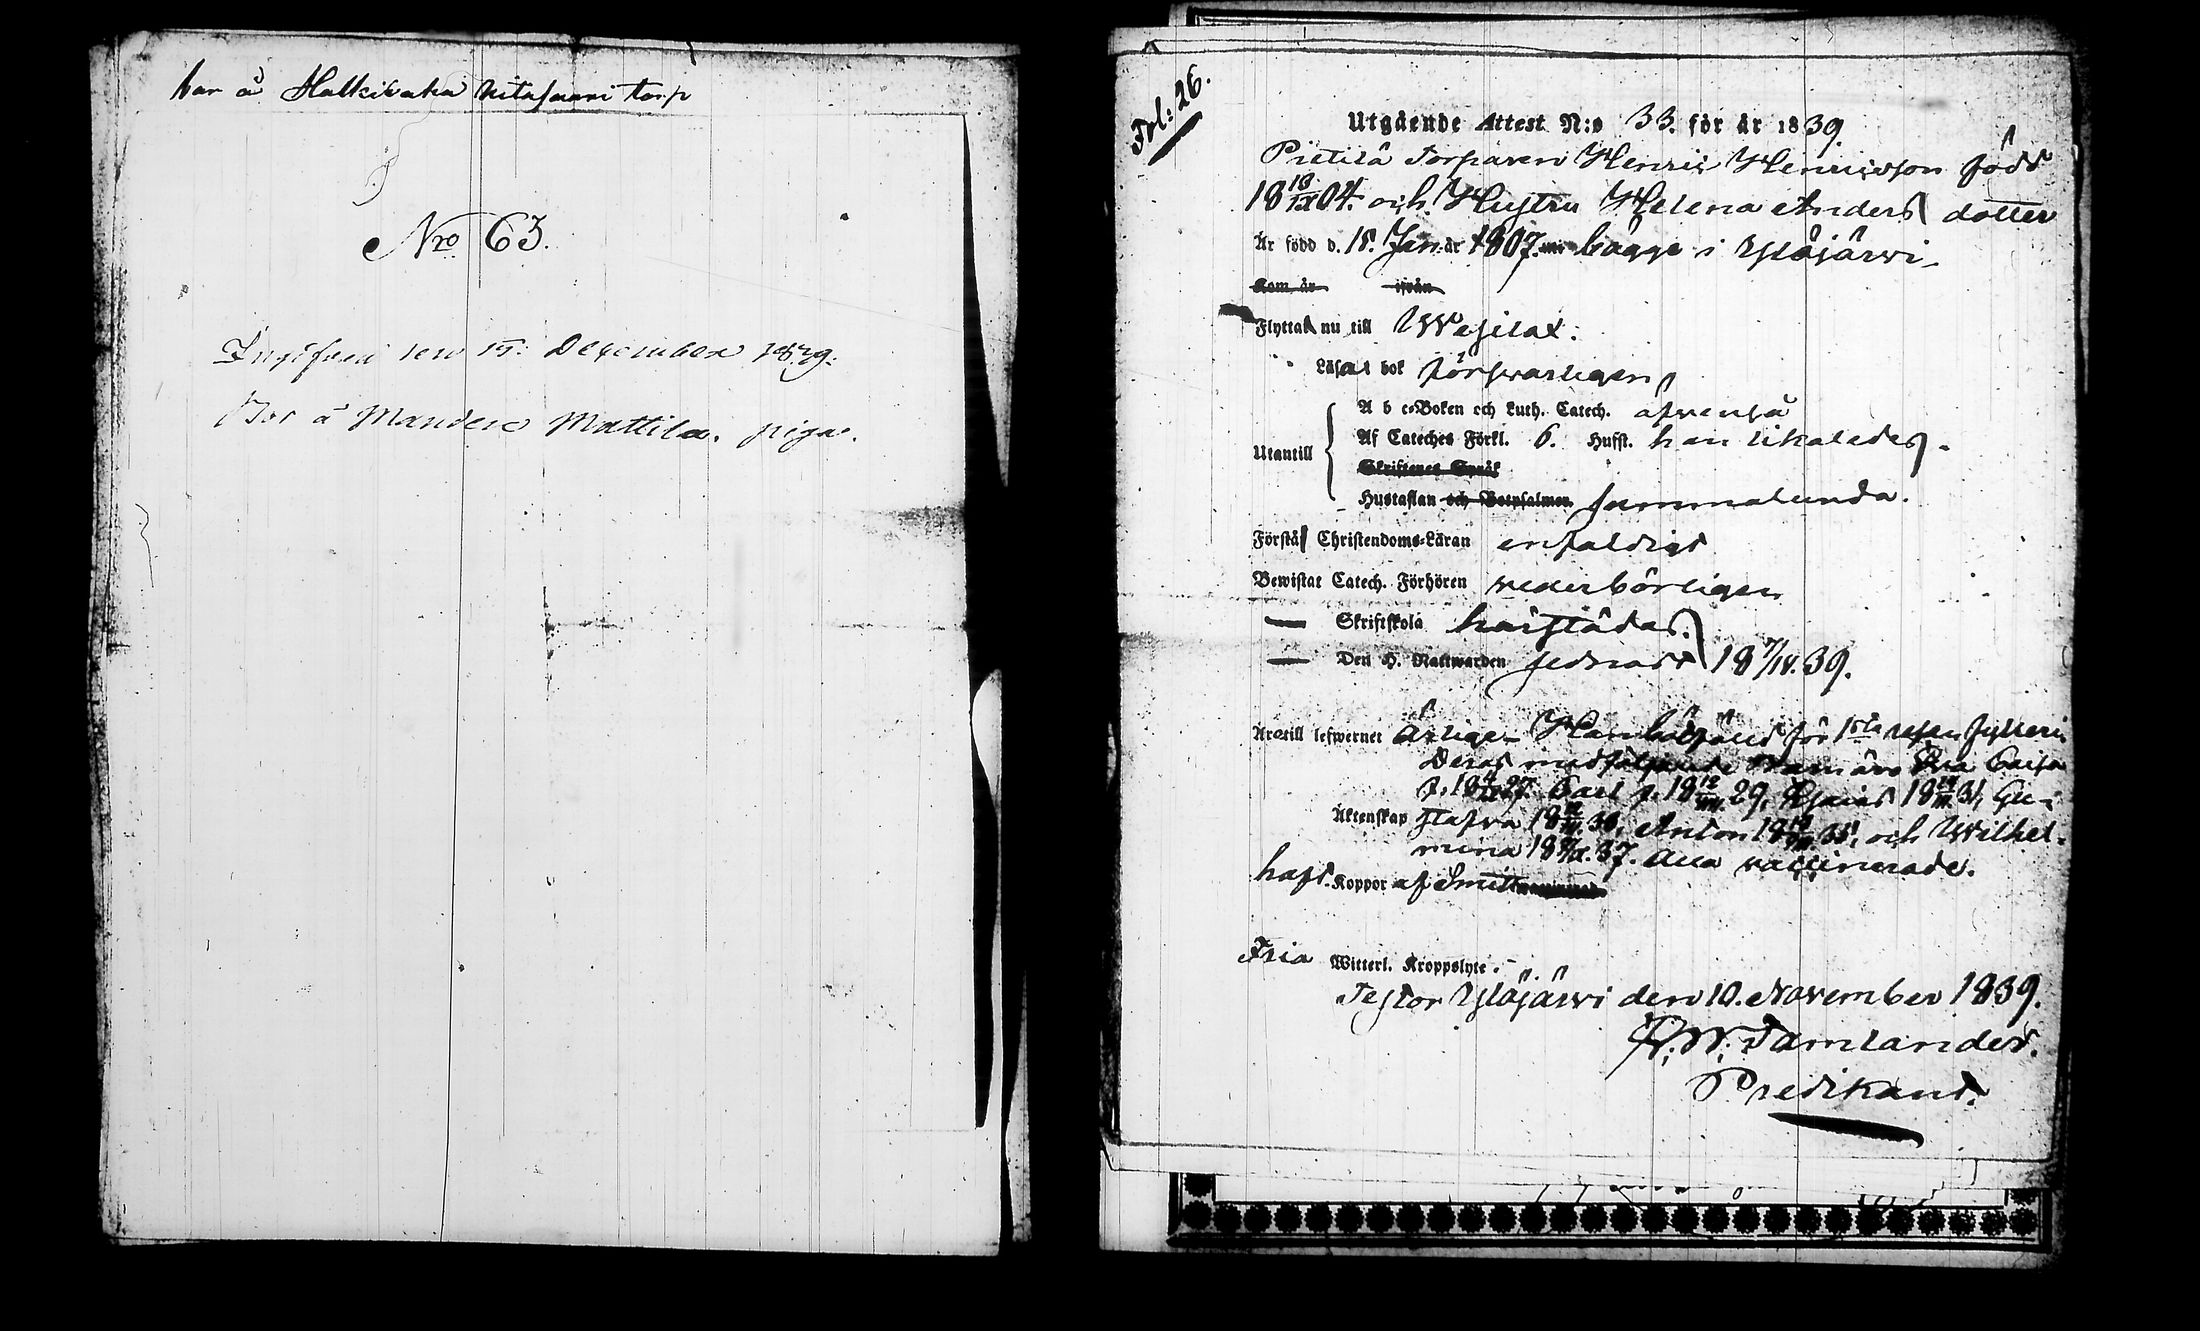 bor å Halkivaha Kitasaari torp
Nro 63.
den 15. December 1839.
Bor å Manders Mattila. piga.
Fol: 26.
Utgående Attest N:o 33. för år 1839.
Pietilä Torparen Henric Henricsson född
18 18/IX 04. och Hustru Helena Anders dotter
Är född d. 15. Jan. år 1807. bägge i Ylöjärwi.
Kom år ifrån
Flytta nu till Wesilax.
Läsa i bok försvarligen
Utantill
A b c-Boken och Luth. Catech. afvenså
Af Cateches Förkl. 6. Hufst. han likaledes.
Skriftenes Språk
Hustaflan och Botpsalmer sammalunda.
Förstå Christendoms-Läran enfaldigt
Bewistat Catech. Förhören vederbörligen
— Skriftskola härstädes.
— Den H. Nattwarden sednast 18 7/IV. 39.
Äro till lefwernet ärliga. Han för 1sta resan fylleri
Deras medföljande Barn äro Eva Caisa
f. 18 27. Carl f. 18 12 29, 18 31, Gu-
Äktenskap stafva 18 , Anton 18 35, och Wilhel-
mina 18 37. alla vaccinerade.
haft Koppor af Smitt
Fria Witterl. Kroppslyte.
Testor Ylöjärwi den 10. November 1839.
Tamlander.
Predikant.